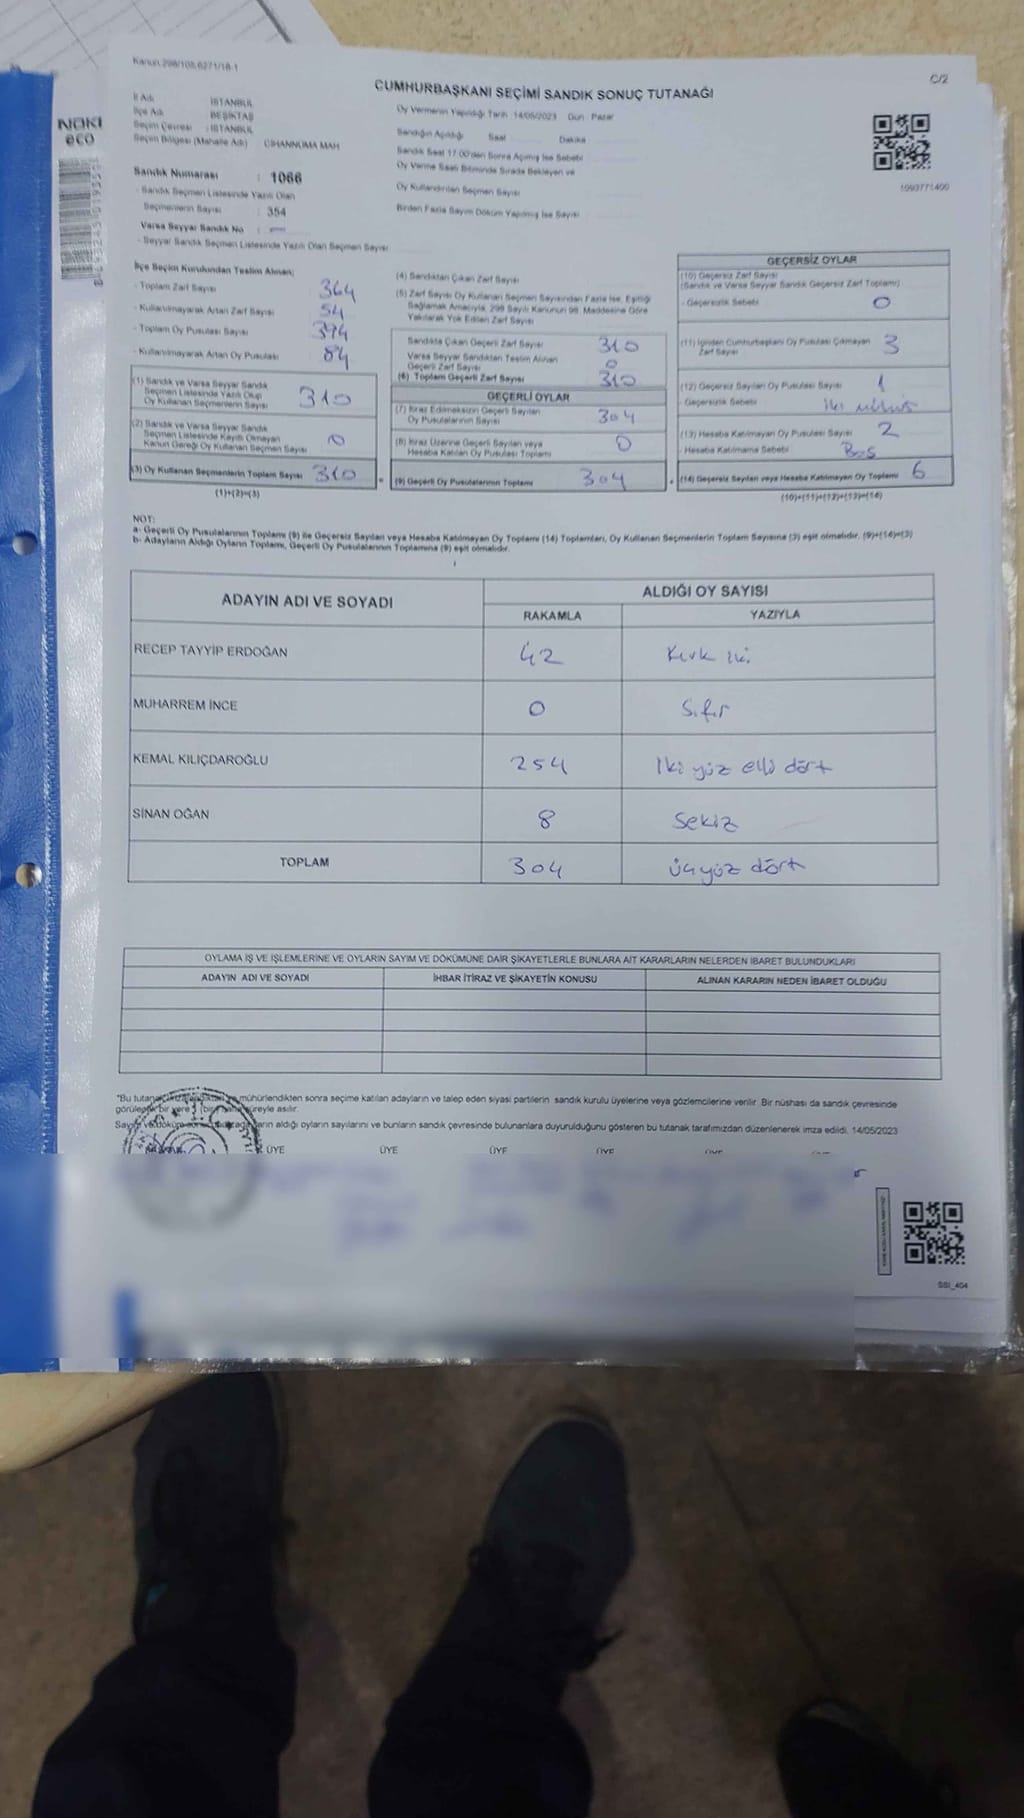 Kanun 298/105,6271/18-1
C/2
CUMHURBAŞKANI SEÇİMİ SANDIK SONUÇ TUTANAĞI
NOKI
eco
İl Adı İSTANBUL
İlçe Adı BEŞİKTAŞ
Seçim Çevresi : İSTANBUL
Seçim Bölgesi (Mahalle Adı) CİHANNÜMA MAH
Sandık Numarası : 1066
- Sandık Seçmen Listesinde Yazılı Olan
Seçmenlerin Sayısı : 354
Varsa Seyyar Sandık No :
- Seyyar Sandık Seçmen Listesinde Yazılı Olan Seçmen Sayısı
Oy Vermenin Yapıldığı Tarih 14/05/2023 Gün : Pazar
Sandığın Açıldığı Saat Dakika
Sandık Saat 17.00'den Sonra Açılmış İse Sebebi
Oy Verme Saati Bitiminde Sırada Bekleyen ve
Oy Kullandırılan Seçmen Sayısı
Birden Fazla Sayım Döküm Yapılmış İse Sayısı
1093771400
İlçe Seçim Kurulundan Teslim Alınan;
- Toplam Zarf Sayısı 364
- Kullanılmayarak Artan Zarf Sayısı 54
- Toplam Oy Pusulası Sayısı 394
- Kullanılmayarak Artan Oy Pusulası 84
(1) Sandık ve Varsa Seyyar Sandık
Seçmen Listesinde Yazılı Olup
Oy Kullanan Seçmenlerin Sayısı 310
(2) Sandık ve Varsa Seyyar Sandık
Seçmen Listesinde Kayıtlı Olmayan
Kanun Gereği Oy Kullanan Seçmen Sayısı 0
(3) Oy Kullanan Seçmenlerin Toplam Sayısı 310
(1)+(2)=(3)
(4) Sandıktan Çıkan Zarf Sayısı
(5) Zarf Sayısı Oy Kullanan Seçmen Sayısından Fazla İse, Eşitliği
Sağlamak Amacıyla, 298 Sayılı Kanunun 98. Maddesine Göre
Yakılarak Yok Edilen Zarf Sayısı
Sandıkta Çıkan Geçerli Zarf Sayısı 310
Varsa Seyyar Sandıktan Teslim Alınan
Geçerli Zarf Sayısı 0
(6) Toplam Geçerli Zarf Sayısı 310
GEÇERLİ OYLAR
(7) İtiraz Edilmeksizin Geçerli Sayılan
Oy Pusulalarının Sayısı 304
(8) İtiraz Üzerine Geçerli Sayılan veya
Hesaba Katılan Oy Pusulası Toplamı 0
= (9) Geçerli Oy Pusulalarının Toplamı 304
GEÇERSİZ OYLAR
(10) Geçersiz Zarf Sayısı
(Sandık ve Varsa Seyyar Sandık Geçersiz Zarf Toplamı)
- Geçersizlik Sebebi 0
(11) İçinden Cumhurbaşkanı Oy Pusulası Çıkmayan
Zarf Sayısı 3
(12) Geçersiz Sayılan Oy Pusulası Sayısı 1
- Geçersizlik Sebebi İki mühür
(13) Hesaba Katılmayan Oy Pusulası Sayısı 2
- Hesaba Katılmama Sebebi Boş
+ (14) Geçersiz Sayılan veya Hesaba Katılmayan Oy Toplamı 6
(10)+(11)+(12)+(13)=(14)
NOT:
a- Geçerli Oy Pusulalarının Toplamı (9) ile Geçersiz Sayılan veya Hesaba Katılmayan Oy Toplamı (14) Toplamları, Oy Kullanan Seçmenlerin Toplam Sayısına (3) eşit olmalıdır. (9)+(14)=(3)
b- Adayların Aldığı Oyların Toplamı, Geçerli Oy Pusulalarının Toplamına (9) eşit olmalıdır.
ADAYIN ADI VE SOYADI ALDIĞI OY SAYISI
RAKAMLA YAZIYLA
RECEP TAYYİP ERDOĞAN 42 Kırk iki
MUHARREM İNCE 0 Sıfır
KEMAL KILIÇDAROĞLU 254 İki yüz elli dört
SİNAN OĞAN 8 Sekiz
TOPLAM 304 üçyüz dört
OYLAMA İŞ VE İŞLEMLERİNE VE OYLARIN SAYIM VE DÖKÜMÜNE DAİR ŞİKAYETLERLE BUNLARA AİT KARARLARIN NELERDEN İBARET BULUNDUKLARI
ADAYIN ADI VE SOYADI İHBAR İTİRAZ VE ŞİKAYETİN KONUSU ALINAN KARARIN NEDEN İBARET OLDUĞU
"Bu tutanak mühürlendikten sonra seçime katılan adayların ve talep eden siyasi partilerin sandık kurulu üyelerine veya gözlemcilerine verilir. Bir nüshası da sandık çevresinde
görülecek bir yere süreyle asılır.
Sayım ve döküm aldığı oyların sayılarını ve bunların sandık çevresinde bulunanlara duyurulduğunu gösteren bu tutanak tarafımızdan düzenlenerek imza edildi. 14/05/2023
ÜYE ÜYE ÜYE ÜYE
SSI_404